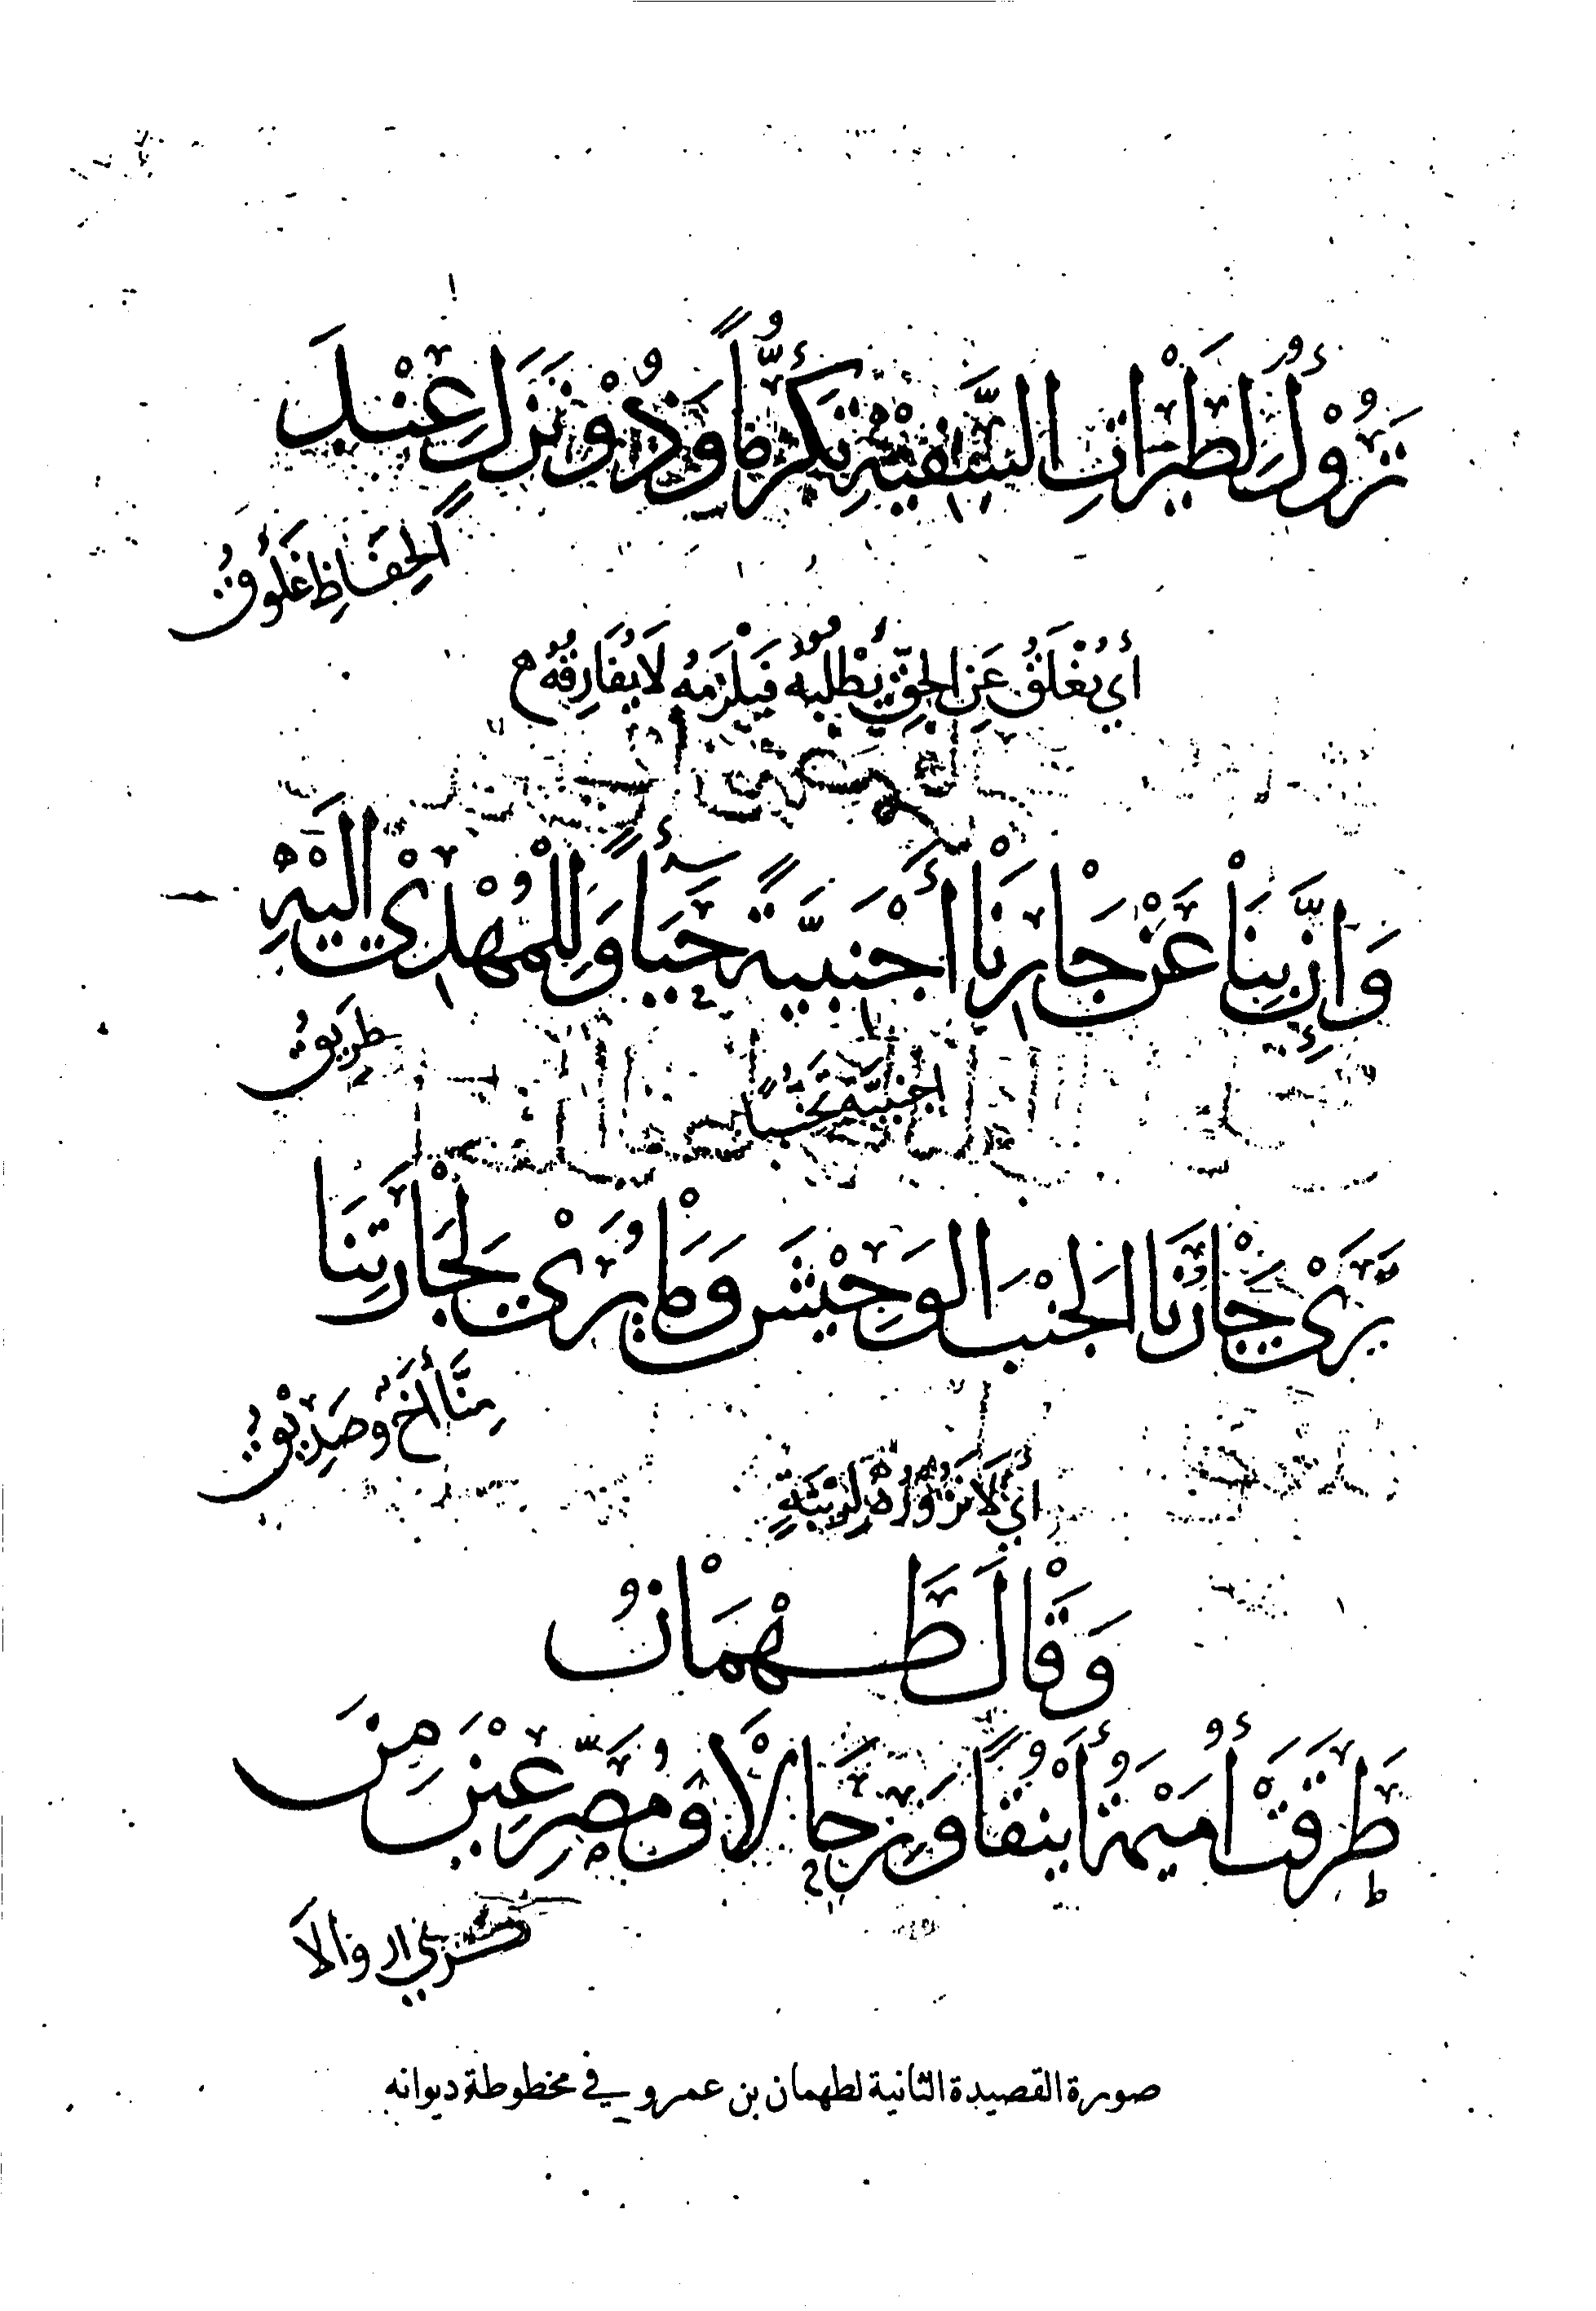 تَرُوْلُ لطَيْرَاتِ السَّفِيْهِ تَكَرُّمًا وَذُوْ نَزَلٍ عِنْدَ
الحِفَاظِ غَلُوْقُ
أي يُغْلَقُ عَنِ الحَقِّ يَطْلُبُهُ فَيَلْزَمُهُ لَا يُفَارِقُهُ
وَإِنَّ بِنَا عَنْ جَارِنَا أَجْنَبِيَّةً حَيَاءً وَلِلْمُهْدَى إِلَيْهِ
طَرِيقُ
اجْنَبِيَّةً تَجَنُّبًا
يَرَى جَارُنَا الجَنْبَ الوَحِيْشَ وَمَا يُرَى لِجَارَتِنَا
مِنَّا أَخٌ وَصَدِيْقُ
أَيْ لَا نَزُوْرُهَا لِرِيْبَةٍ
وَقَالَ طَهْمَانُ
طَرَقَتْ أُمَيْمَةُ أَيْنُقًا وَرِحَالًا وَمُصَرَّعِيْنَ مِنَ
الكرى ازوالا
صورة القصيدة الثانية لطهمان بن عمرو في مخطوطة ديوانه